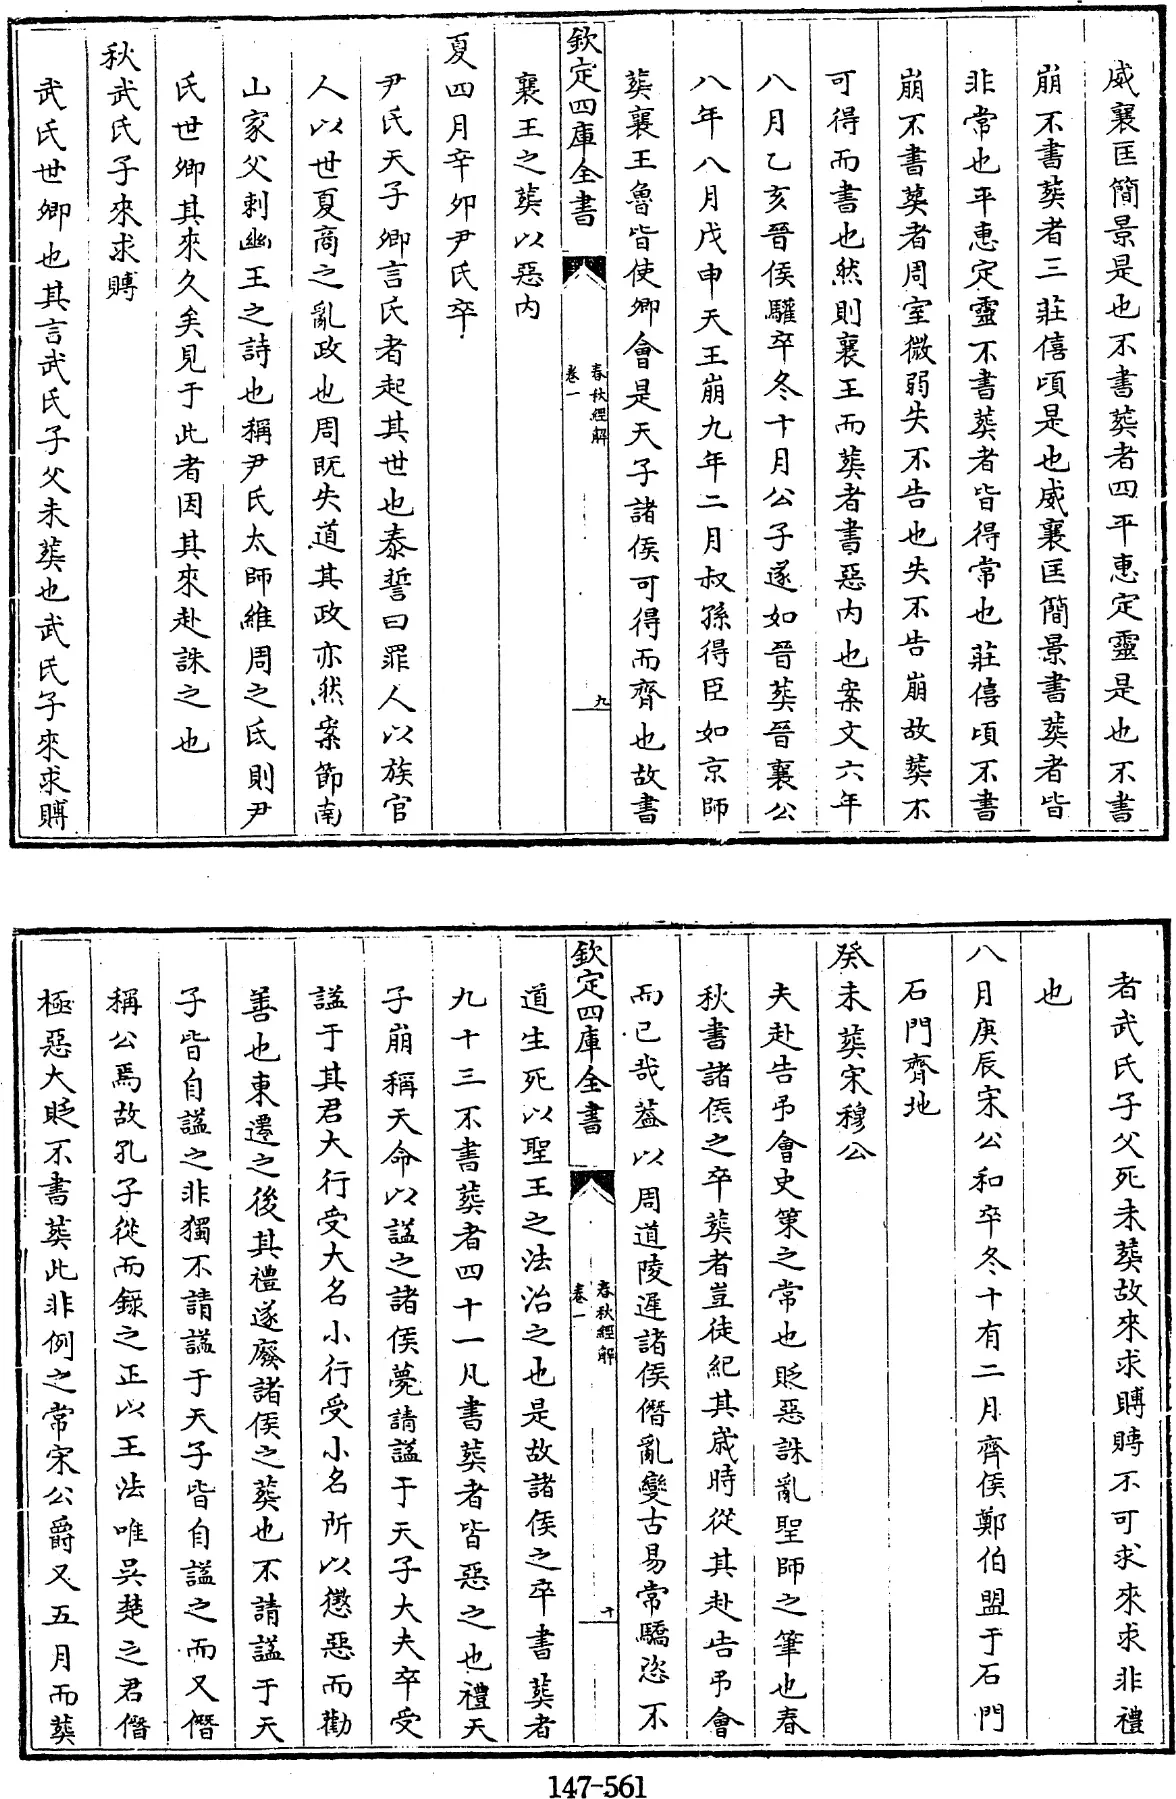 威襄匡簡景是也不書葬者四平惠定靈是也不書
崩不書葬者三莊僖頃是也威襄匡簡景書葬者皆
非常也平惠定靈不書葬者皆得常也莊僖頃不書
崩不書葬者周室微弱失不告也失不告崩故葬不
可得而書也然則襄王而葬者書惡内也案文六年
八月乙亥晉侯驩卒冬十月公子遂如晉葬晉襄公
八年八月戊申天王崩九年二月叔孫得臣如京師
葬襄王魯皆使卿會是天子諸侯可得而齊也故書
欽定四庫全書
春秋經解
卷一
九
襄王之葬以惡内
夏四月辛卯尹氏卒
尹氏天子卿言氏者起其世也泰誓曰罪人以族官
人以世夏商之亂政也周既失道其政亦然案節南
山家父刺幽王之詩也稱尹氏太師維周之氐則尹
氏世卿其來久矣見于此者因其來赴誅之也
秋武氏子來求賻
武氏世卿也其言武氏子父未葬也武氏子來求賻
者武氏子父死未葬故來求賻賻不可求來求非禮
也
八月庚辰宋公和卒冬十有二月齊侯鄭伯盟于石門
石門齊地
癸未葬宋穆公
夫赴告弔會史策之常也貶惡誅亂聖師之筆也春
秋書諸侯之卒葬者豈徒紀其歳時從其赴告弔會
而已哉葢以周道陵遲諸侯僭亂變古易常驕恣不
欽定四庫全書
春秋經解
卷一
十
道生死以聖王之法治之也是故諸侯之卒書葬者
九十三不書葬者四十一凡書葬者皆惡之也禮天
子崩稱天命以諡之諸侯薨請諡于天子大夫卒受
諡于其君大行受大名小行受小名所以懲惡而勸
善也東遷之後其禮遂廢諸侯之葬也不請諡于天
子皆自諡之非獨不請諡于天子皆自諡之而又僭
稱公焉故孔子從而録之正以王法唯吳楚之君僭
極惡大貶不書葬此非例之常宋公爵又五月而葬
147-561